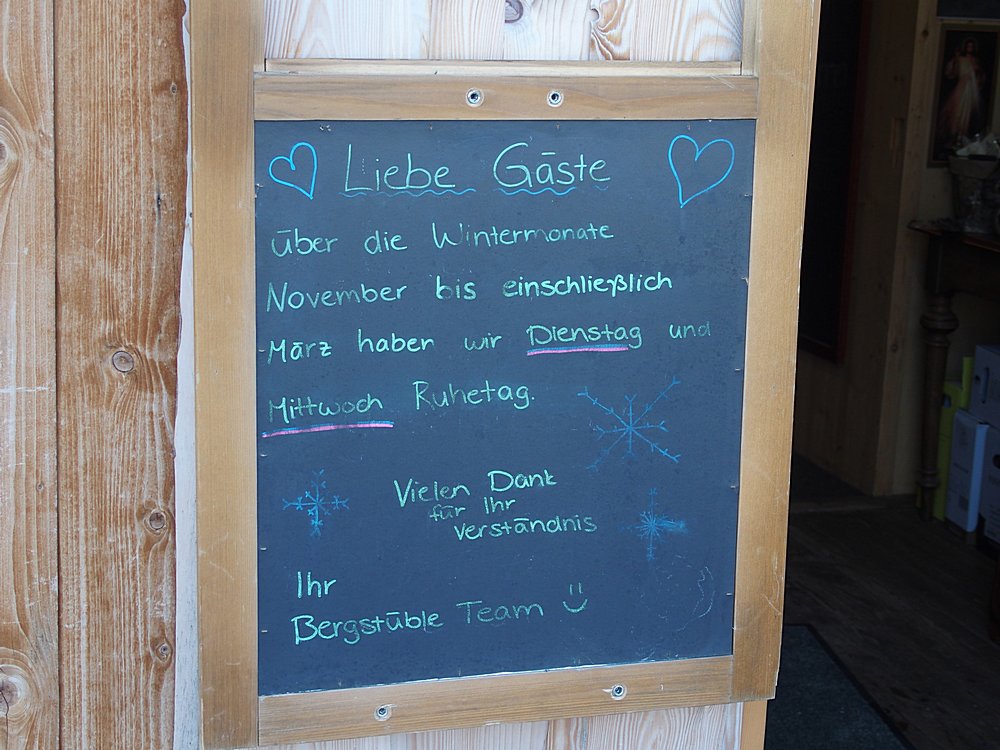 Liebe Gäste
über die Wintermonate
November bis einschließlich
März haben wir Dienstag und
Mittwoch Ruhetag.
Vielen Dank
für Ihr
Verständnis
Ihr
Bergstüble Team